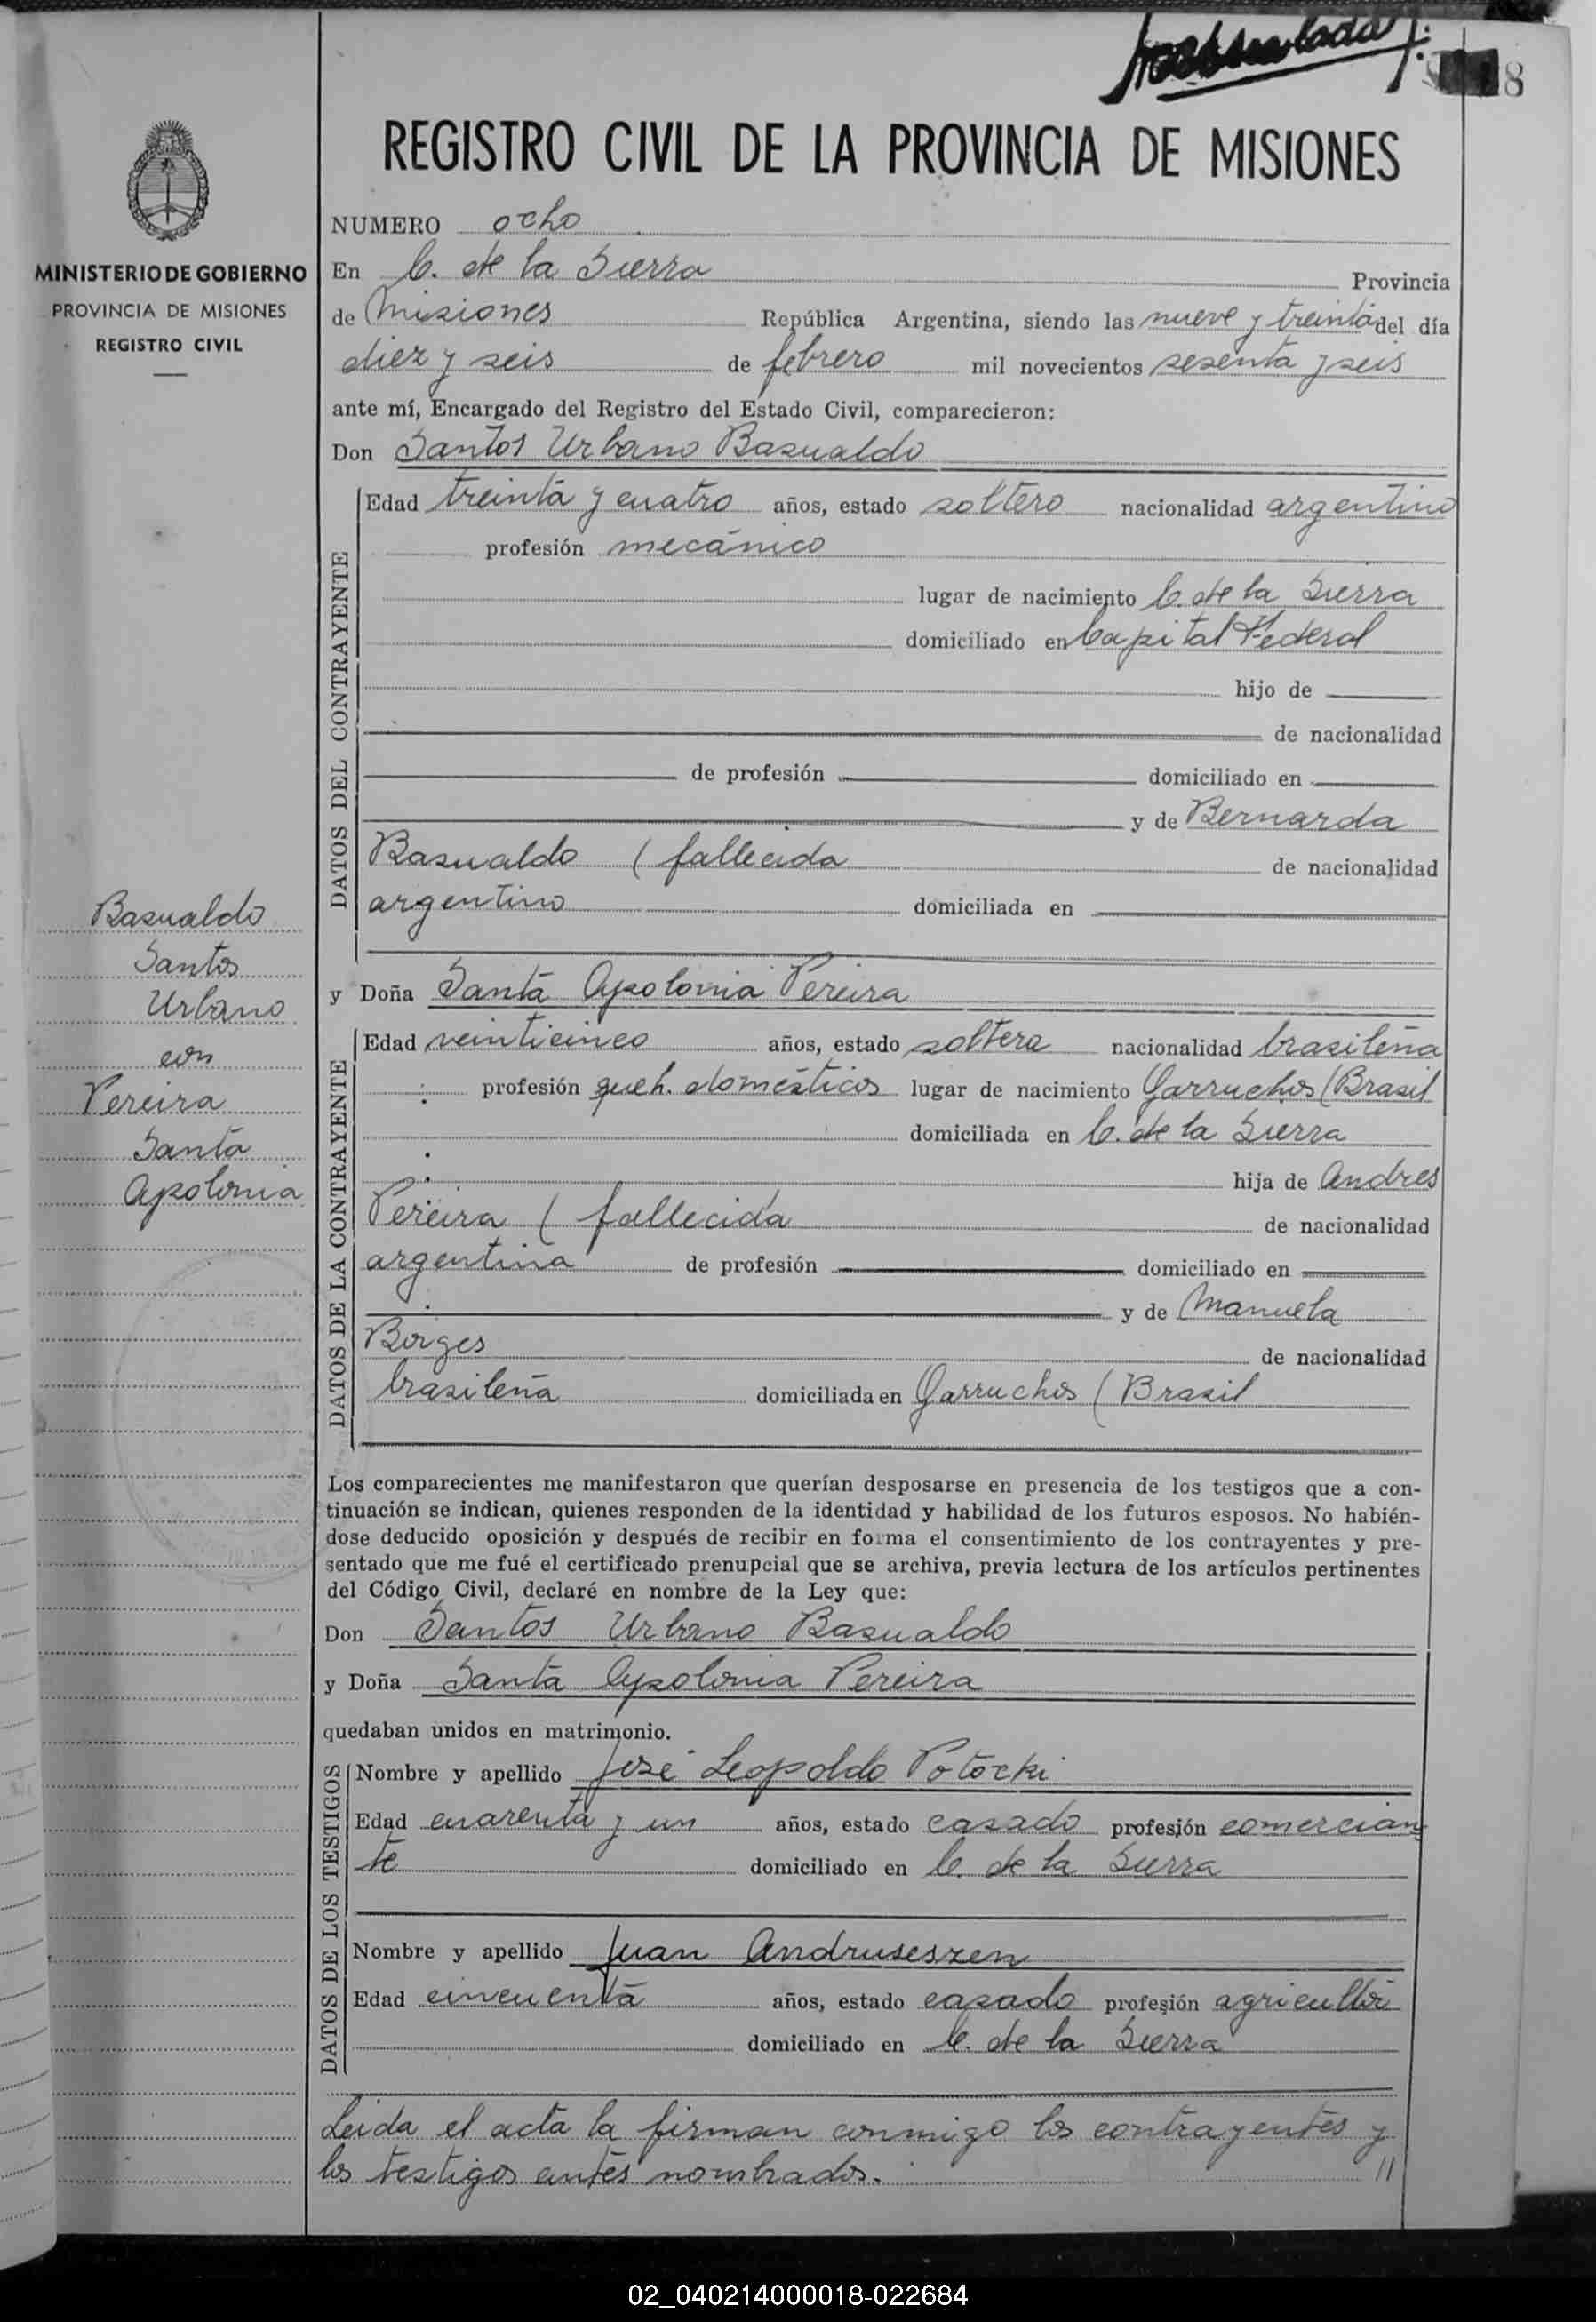 8
REGISTRO CIVIL DE LA PROVINCIA DE MISIONES
MINISTERIO DE GOBIERNO
PROVINCIA DE MISIONES
REGISTRO CIVIL
NUMERO ocho
En C. de la Sierra Provincia
de Misiones República Argentina, siendo las nueve y treinta del día
diez y seis de febrero mil novecientos sesenta y seis
ante mí, Encargado del Registro del Estado Civil, comparecieron:
Don Santos Urbano Basualdo
DATOS DEL CONTRAYENTE
Edad treinta y cuatro años, estado soltero nacionalidad argentino
profesión mecánico
lugar de nacimiento C. de la Sierra
domiciliado en Capital Federal
hijo de
de nacionalidad
de profesión domiciliado en
y de Bernarda
Basualdo ( fallecida de nacionalidad
argentino domiciliada en
Basualdo
Santos
Urbano
con
Pereira
Santa
Apolonia
y Doña Santa Apolonia Pereira
DATOS DE LA CONTRAYENTE
Edad veinticinco años, estado soltera nacionalidad brasileña
profesión queh. domésticos lugar de nacimiento Garruchos (Brasil
domiciliada en C. de la Sierra
hija de Andres
Pereira ( fallecida de nacionalidad
argentina de profesión domiciliado en
y de Manuela
Borges de nacionalidad
brasileña domiciliada en Garruchos ( Brasil
Los comparecientes me manifestaron que querían desposarse en presencia de los testigos que a con-
tinuación se indican, quienes responden de la identidad y habilidad de los futuros esposos. No habién-
dose deducido oposición y después de recibir en forma el consentimiento de los contrayentes y pre-
sentado que me fué el certificado prenupcial que se archiva, previa lectura de los artículos pertinentes
del Código Civil, declaré en nombre de la Ley que:
Don Santos Urbano Basualdo
y Doña Santa Apolonia Pereira
quedaban unidos en matrimonio.
DATOS DE LOS TESTIGOS
Nombre y apellido José Leopoldo Potocki
Edad cuarenta y un años, estado casado profesión comercian
te domiciliado en C. de la Sierra
Nombre y apellido Juan Andruseszen
Edad cincuenta años, estado casado profesión agricultor
domiciliado en C. de la Sierra
Leida el acta la firman conmigo los contrayentes y
los testigos antes nombrados. //
02_040214000018-022684